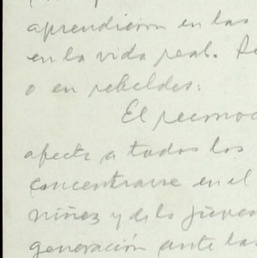 aprendieron en las
en la vida real. Re
o en rebeldes.
El reconoc
afecte a todos los
concentrarse en el
niñez y de la juven
generación ante las